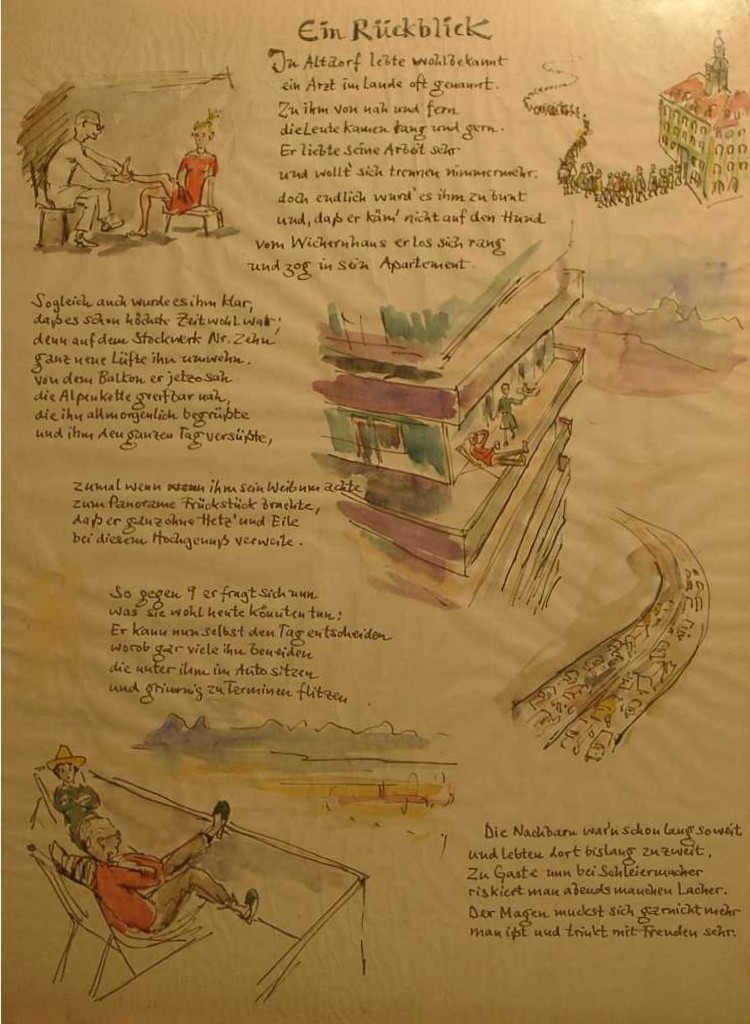 Ein Rückblick
In Altdorf lebte wohlbekannt
ein Arzt im Lande oft genannt.
Zu ihm von nah und fern
die Leute kamen lang und gern.
Er liebte seine Arbeit sehr
und wollt' sich trennen nimmermehr.
doch endlich ward' es ihm zu bunt
und, daß er käm' nicht auf den Hund
vom Wichernhaus er los sich rang
und zog in sein Apartement.
Sogleich auch wurde es ihm klar,
daß es schon höchste Zeit wohl war;
denn auf dem Stockwerk Nr. Zehn
ganz neue Lüfte ihn umwehn.
von dem Balkon er jetzo sah
die Alpenkette greifbar nah,
die ihn allmorgenlich begrüßte
und ihm den ganzen Tag versüßte,
zumal wenn ihm sein Weib um achte
zum Panorama Frückstück brachte,
daß er ganz ohne Hetz' und Eile
bei diesem Hochgenuß verweile.
So gegen 9 er fragt sich nun
was sie wohl heute könnten tun:
Er kann nun selbst den Tag entscheiden
worob gar viele ihn beneiden
die unter ihm im Auto sitzen
und grimmig zu Terminen flitzen
Die Nachbarn war'n schon lang soweit
und lebten dort bislang zu zweit,
Zu Gaste nun bei Schleiermacher
riskiert man abends manchen Lacher.
Der Magen muckst sich garnicht mehr
man ißt und trinkt mit Freuden sehr.